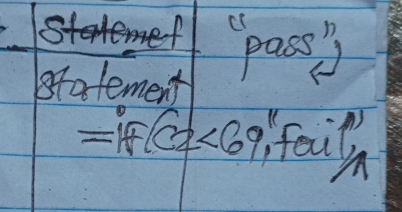 Statemet "pass")
Statement
=if(C2<69,"fail",